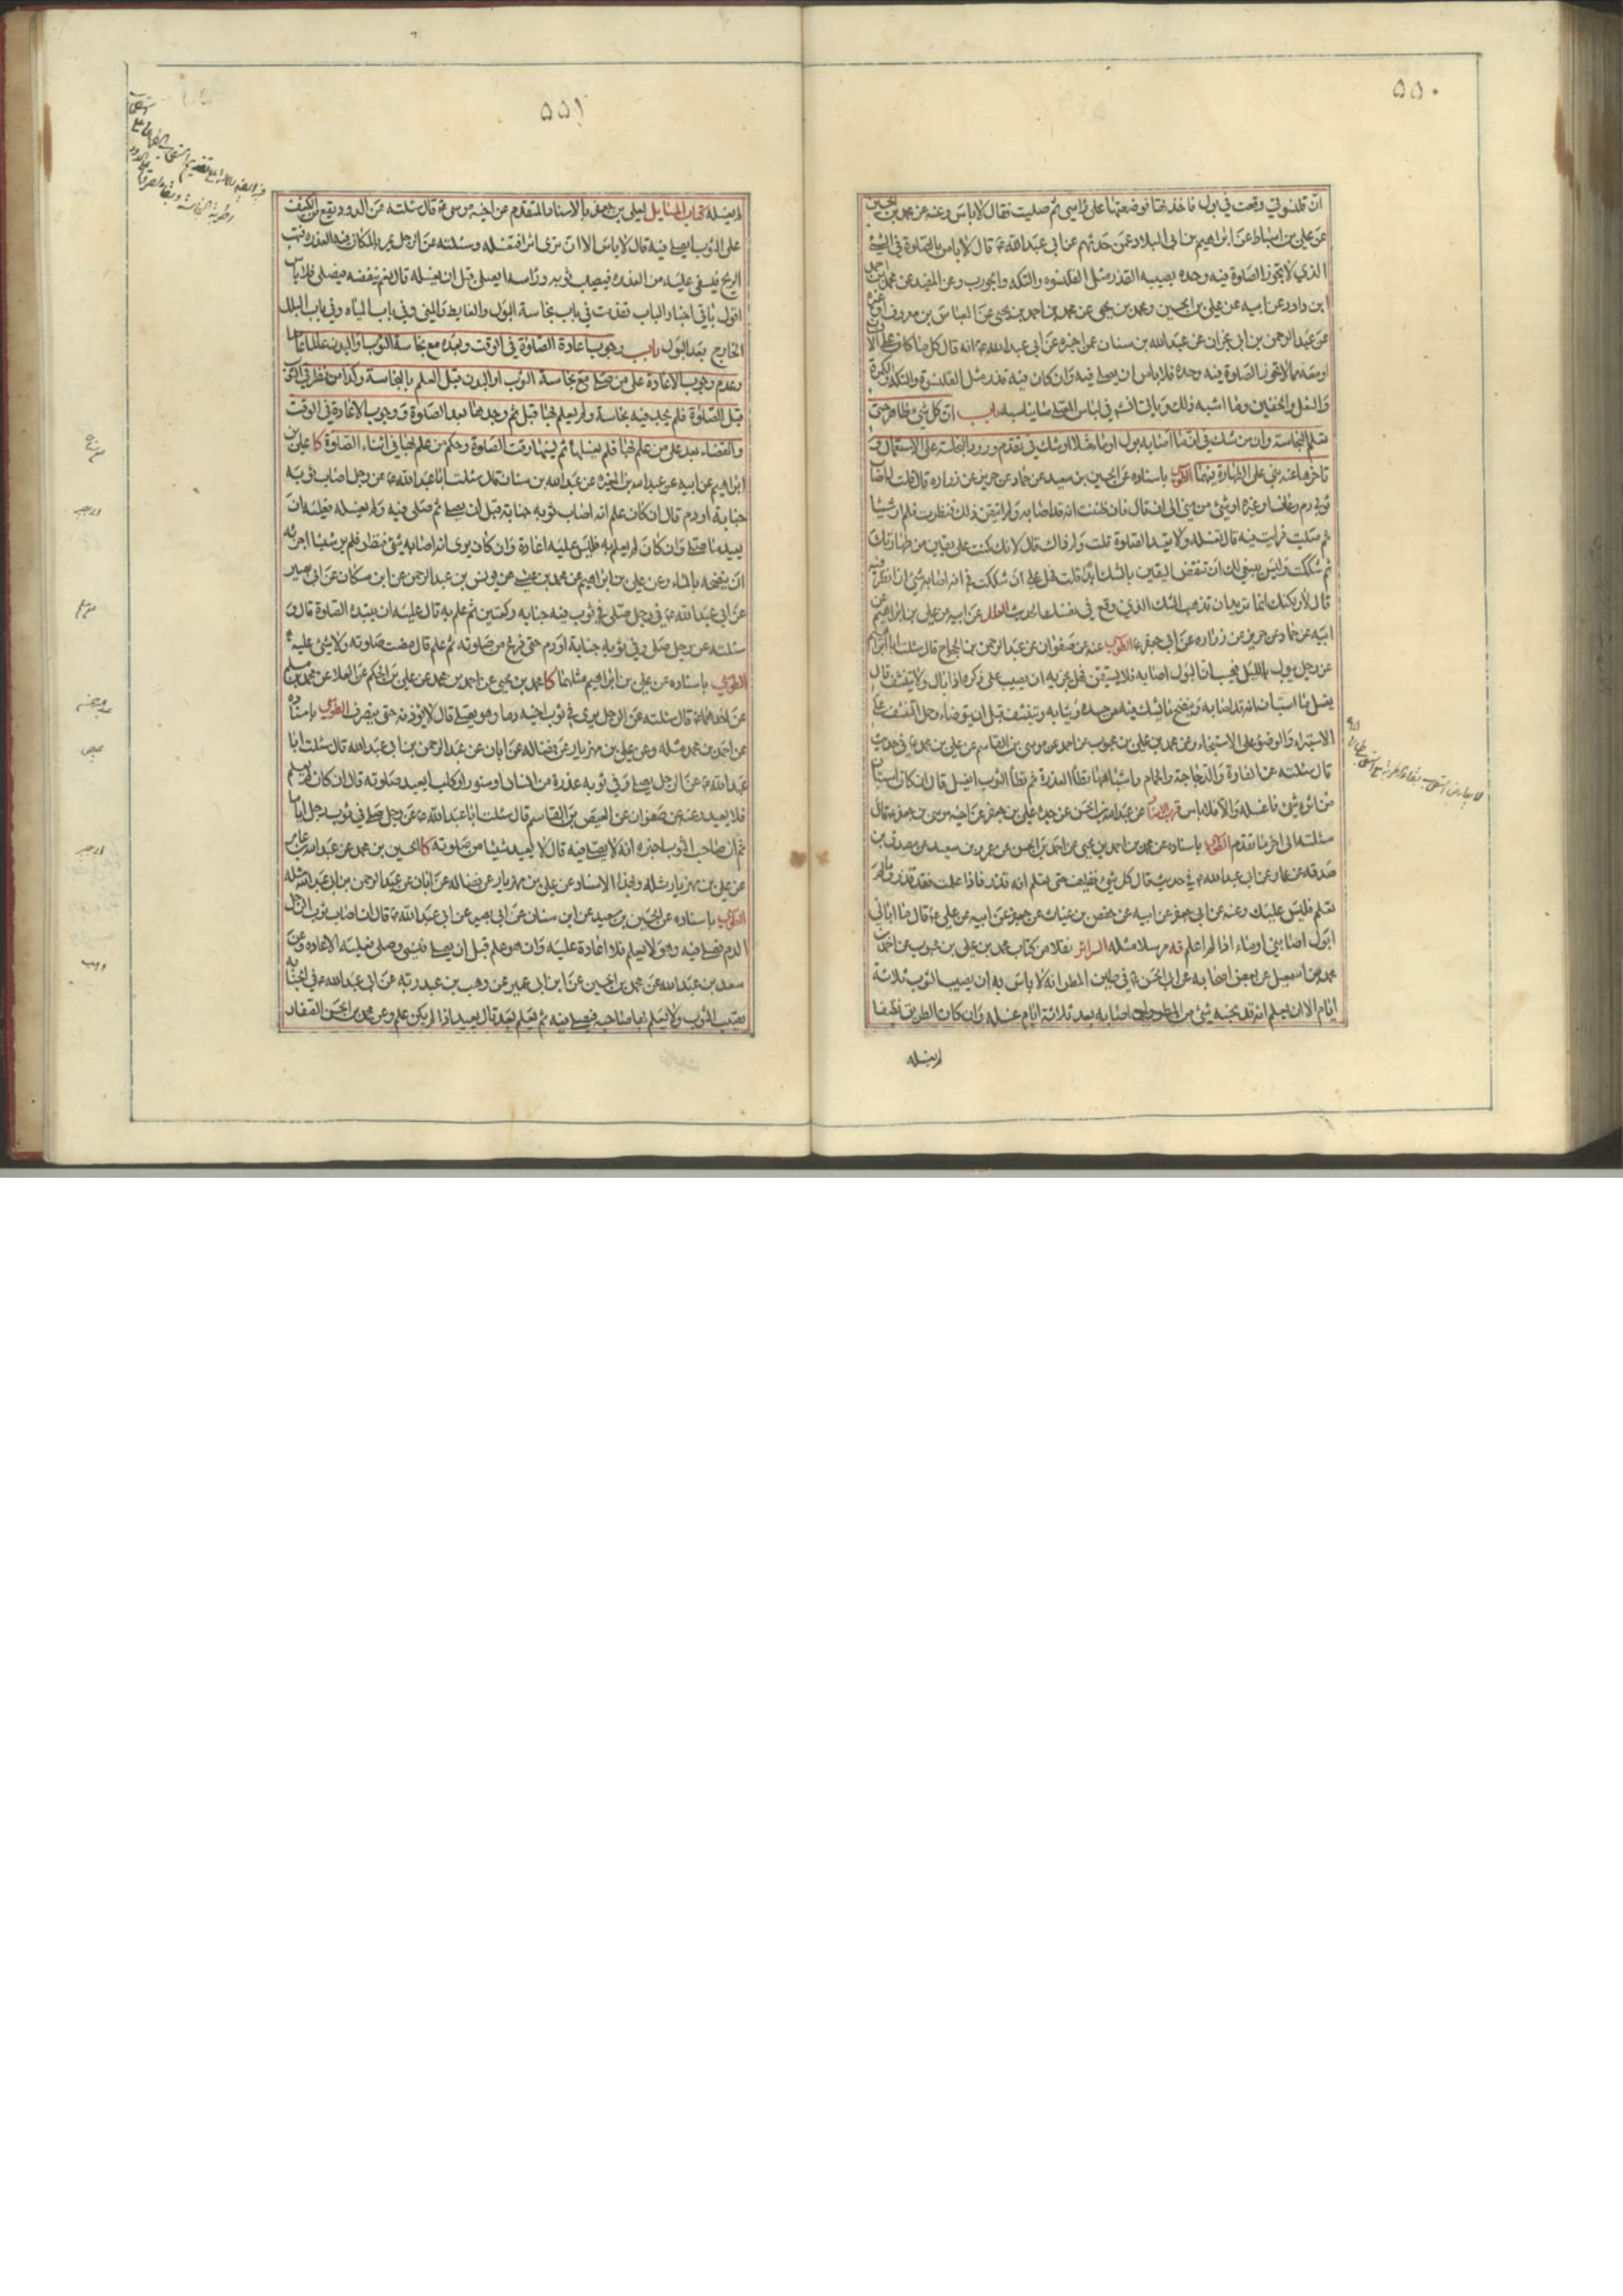 ٥٥٠
ان قلنسوتي وقعت في بول فاخذتها فوضعتها على راسي ثم صليت فقال لا باس وعنه عن محمد بن الحسين
عن علي بن اسباط عن ابراهيم بن ابي البلاد عمن حدثهم عن ابي عبد الله ع قال لا باس بالصلوة في الشئ
الذي لا تجوز الصلوة فيه وحده يصيبه القذر مثل القلنسوه والتكه والجورب وعن المفيد عن محمد بن احمد
ابن داود عن ابيه عن علي بن الحسين ومحمد بن يحيى عن محمد بن احمد بن يحيى عن العباس بن معروف او غيره
عن عبد الرحمن بن ابي نجران عن عبد الله بن سنان عمن اخبره عن ابي عبد الله ع انه قال كل ما كان على الا
او معه مما لا تجوز الصلوة فيه وحده فلا باس ان يصلى فيه وان كان فيه قذر مثل القلنسوة والتكه والكمرة
والنعل والخفين وما اشبه ذلك وياتي في لباس المصلي ما يناسبه باب ان كل شئ طاهر حتى
تعلم النجاسة وان من شك في ان ما اصابه بول او ماء مثلا او شك في تقدم ورود النجاسة على الاستعمال و
تاخرها عنه بنى على الطهارة فيهما الطوسي باسناده عن الحسين بن سعيد عن حماد عن حريز عن زراره قال قلت اصاب
ثوبي دم رعاف او غيره او شئ من مني الى ان قال فان ظننت انه قد اصابه ولم اتيقن ذلك فنظرت فلم ار شيئا
ثم صليت فرايت فيه قال تغسله ولا تعيد الصلوة قلت ولم ذاك قال لانك كنت على يقين من طهارتك
ثم شككت فليس ينبغي لك ان تنقض اليقين بالشك ابدا قلت فهل علي ان شككت في انه اصابه شئ ان انظر فيه
قال لا ولكنك انما تريد ان تذهب الشك الذي وقع في نفسك الحديث العلل عن ابيه عن علي بن ابراهيم عن
ابيه عن حماد عن حريز عن زراره عن ابي جعفر ع الطوسي عنه عن صفوان عن عبد الرحمن بن الحجاج قال سئلت ابا ابراهيم
عن رجل يبول بالليل فيحسب ان البول اصابه فلا يستيقن فهل يجزيه ان يصب على ذكره اذا بال ولا يتنشف قال
يغسل ما استبان انه قد اصابه وينضح ما يشك فيه من جسده وثيابه ويتنشف قبل ان يتوضاء وحمل التنشف على
الاستبراء والوضوء على الاستنجاء وعن محمد بن علي بن محبوب عن احمد عن موسى بن القاسم عن علي بن محمد ع في حديث
قال سئلته عن الفارة والدجاجة والحمام واشباهها تطأ العذرة ثم تطأ الثوب ايغسل قال ان كان استبان
من اثره شئ فاغسله والا فلا باس قرب الاسناد عن عبد الله بن الحسن عن جده علي بن جعفر عن اخيه موسى بن جعفر ع قال
سئلته الى اخر ما تقدم الطوسي باسناده عن محمد بن احمد بن يحيى عن احمد بن الحسن عن عمرو بن سعيد عن مصدق بن
صدقه عن عمار عن ابي عبد الله ع في حديث قال كل شئ نظيف حتى تعلم انه قذر فاذا علمت فقد قذر وما لم
تعلم فليس عليك وعنه عن ابي جعفر عن ابيه عن حفص بن غياث عن جعفر عن ابيه عن علي ع قال ما ابالي
ابول اصابني او ماء اذا لم اعلم فه مرسلا مثله السرائر نقلا من كتاب محمد بن علي بن محبوب عن احمد عن
محمد بن اسمعيل عن بعض اصحابه عن ابي الحسن ع في طين المطر انه لا باس به ان يصيب الثوب ثلاثة
ايام الا ان يعلم انه قد نجسه شئ من المطر وان اصابه بعد ثلاثة ايام غسله وان كان الطريق نظيفا
لم يغسله
٥٥١
لم يغسله كتاب المسايل لعلي بن جعفر بالاسناد المتقدم عن اخيه موسى ع قال سئلته عن الدود يقع من الكنيف
على الثوب ايصلي فيه قال لا باس الا ان ترى اثرا فتغسله وسئلته عن الرجل يمر بالمكان فيه العذره فتهب
الريح فتسفي عليه من العذره فيصيب ثوبه وراسه ايصلي قبل ان يغسله قال نعم ينفضه ويصلي فلا باس
اقول باقي اخبار الباب تقدمت في باب نجاسة البول والغايط والمني وفي باب المياه وفي باب البلل
الخارج بعد البول باب وجوب اعادة الصلوة في الوقت وبعده مع نجاسة الثوب او البدن عالما عامدا
وعدم وجوب الاعادة على من صلى مع نجاسة الثوب او البدن قبل العلم بالنجاسة وكذا من نظر في الثوب
قبل الصلوة فلم يجد فيه نجاسة ولم يعلم بها قبل ثم وجدها بعد الصلوة ووجوب الاعادة في الوقت
والقضاء بعد على من علم بها فلم يغسلها ثم نسيها وقت الصلوة وحكم من علم بها في اثناء الصلوة كا علي بن
ابراهيم عن ابيه عن عبد الله بن المغيره عن عبد الله بن سنان قال سئلت ابا عبد الله ع عن رجل اصاب ثوبه
جنابة او دم قال ان كان علم انه اصاب ثوبه جنابة قبل ان يصلي ثم صلى فيه ولم يغسله فعليه ان
يعيد ما صلى وان كان لم يعلم به فليس عليه اعادة وان كان يرى انه اصابه شئ فنظر فلم ير شيئا اجزئه
ان ينضحه بالماء وعن علي بن ابراهيم عن محمد بن عيسى عن يونس بن عبد الرحمن عن ابن مسكان عن ابي بصير
عن ابي عبد الله ع في رجل صلى في ثوب فيه جنابه ركعتين ثم علم به قال عليه ان يبتدء الصلوة قال و
سئلته عن رجل صلى وفي ثوبه جنابة او دم حتى فرغ من صلوته ثم علم قال مضت صلوته ولا شئ عليه
الطوسي باسناده عن علي بن ابراهيم مثلهما كا محمد بن يحيى عن احمد بن محمد عن علي بن الحكم عن العلا عن محمد بن مسلم
عن احدهما ع قال سئلته عن الرجل يرى في ثوب اخيه دما وهو يصلي قال لا يؤذنه حتى ينصرف الطوسي باسناده
عن احمد بن محمد مثله وعن علي بن مهزيار عن فضاله عن ابان عن عبد الرحمن بن ابي عبد الله قال سئلت ابا
عبد الله ع عن الرجل يصلي وفي ثوبه عذرة من انسان او سنور او كلب ايعيد صلوته قال ان كان لم يعلم
فلا يعيد وعنه عن صفوان عن العيص بن القاسم قال سئلت ابا عبد الله ع عن رجل صلى في ثوب رجل اياما
ثم ان صاحب الثوب اخبره انه لا يصلي فيه قال لا يعيد شيئا من صلوته كا الحسين بن محمد عن عبد الله بن عامر
عن علي بن مهزيار مثله وبهذا الاسناد عن علي بن مهزيار عن فضاله عن ابان عن عبد الرحمن بن ابي عبد الله مثله
الطوسي باسناده عن الحسين بن سعيد عن ابن سنان عن ابي بصير عن ابي عبد الله ع قال ان اصاب ثوب الرجل
الدم فصلى فيه وهو لا يعلم فلا اعادة عليه وان هو علم قبل ان يصلي فنسي وصلى فعليه الاعاده وعن
سعد بن عبد الله عن محمد بن الحسين عن ابن ابي عمير عن وهب بن عبد ربه عن ابي عبد الله ع في الجنابه
تصيب الثوب ولا يعلم بها صاحبه فيصلي فيه ثم يعلم بعد قال يعيد اذا لم يكن علم وعن محمد بن الحسن الصفار